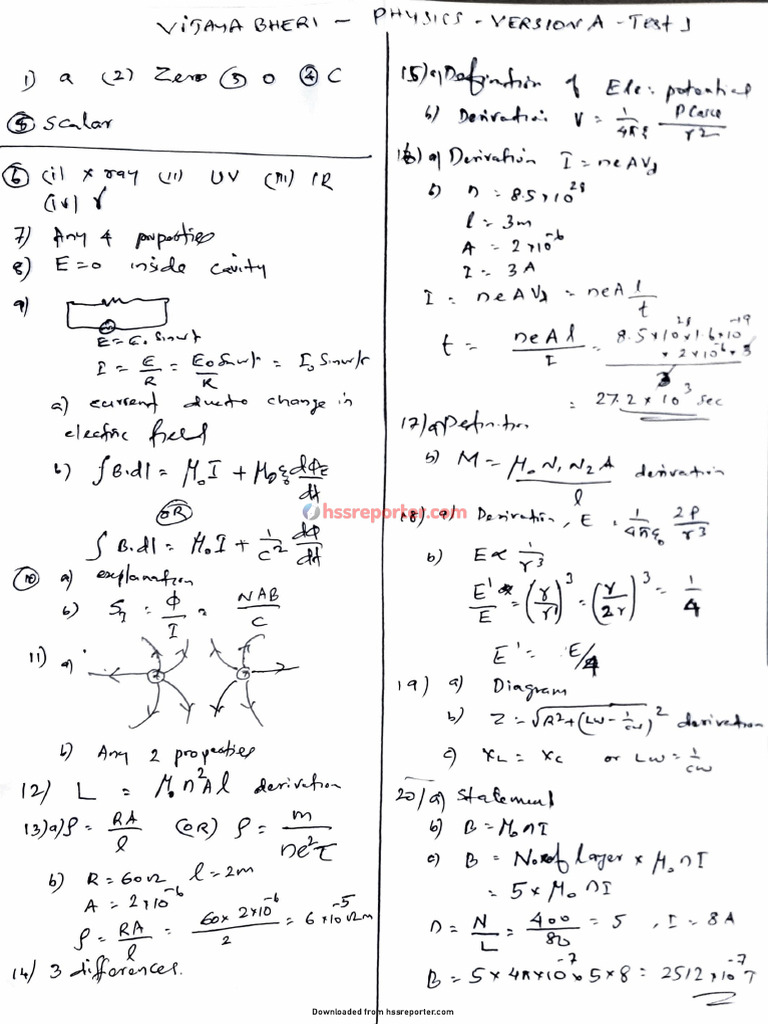 VIJAYA BHERI - PHYSICS - VERSION A - Test 1
1) a (2) Zero (3) 0 (4) C
(5) Scalar
(6) (i) x ray (ii) UV (iii) IR
(iv) γ
7) Any 4 properties
8) E=0 inside cavity
9)
E=E₀ sinωt
I = E/R = E₀ Sinωt/R = I₀ Sinωt
a) current due to change in
electric field
b) ∫B.dl = μ₀I + μ₀ε₀ dΦE/dt
OR
∫B.dl = μ₀I + 1/c² dΦ/dt
(10) a) explanation
b) SI = Φ/I = NAB/C
11) a)
b) Any 2 properties
12) L = μ₀n²Al derivation
13) a) ρ = RA/l (OR) ρ = m/ne²τ
b) R = 60Ω l = 2m
A = 2×10⁻⁶
ρ = RA/l = 60×2×10⁻⁶/2 = 6×10⁻⁵ Ωm
14) 3 differences.
15) a) Definition of Ele: potential
b) Derivation V = 1/4πε PCosθ/r2
16) a) Derivation I = neAVd
b) n = 8.5×10²⁸
l = 3m
A = 2×10⁻⁶
I = 3A
I = neAVd = neA l/t
t = neAl/I = 8.5×10²⁸×1.6×10⁻¹⁹×2×10⁻⁶×3/3
= 27.2×10³ sec
17) a) Definition
b) M = μ₀N₁N₂A/l derivation
18) a) Derivation, E = 1/4πε₀ 2P/r³
b) E∝ 1/r³
E'/E = (r/r')³ = (r/2r)³ = 1/4
E' = E/4
19) a) Diagram
b) Z = √R²+(Lω-1/cω)² derivation
c) XL = XC or Lω = 1/cω
20) a) Statement
b) B = μ₀nI
c) B = No. of layer × μ₀nI
= 5×μ₀nI
n = N/L = 400/80 = 5 , I = 8A
B = 5×4π×10⁻⁷×5×8 = 2512×10⁻⁷ T
hssreporter.com
Downloaded from hssreporter.com